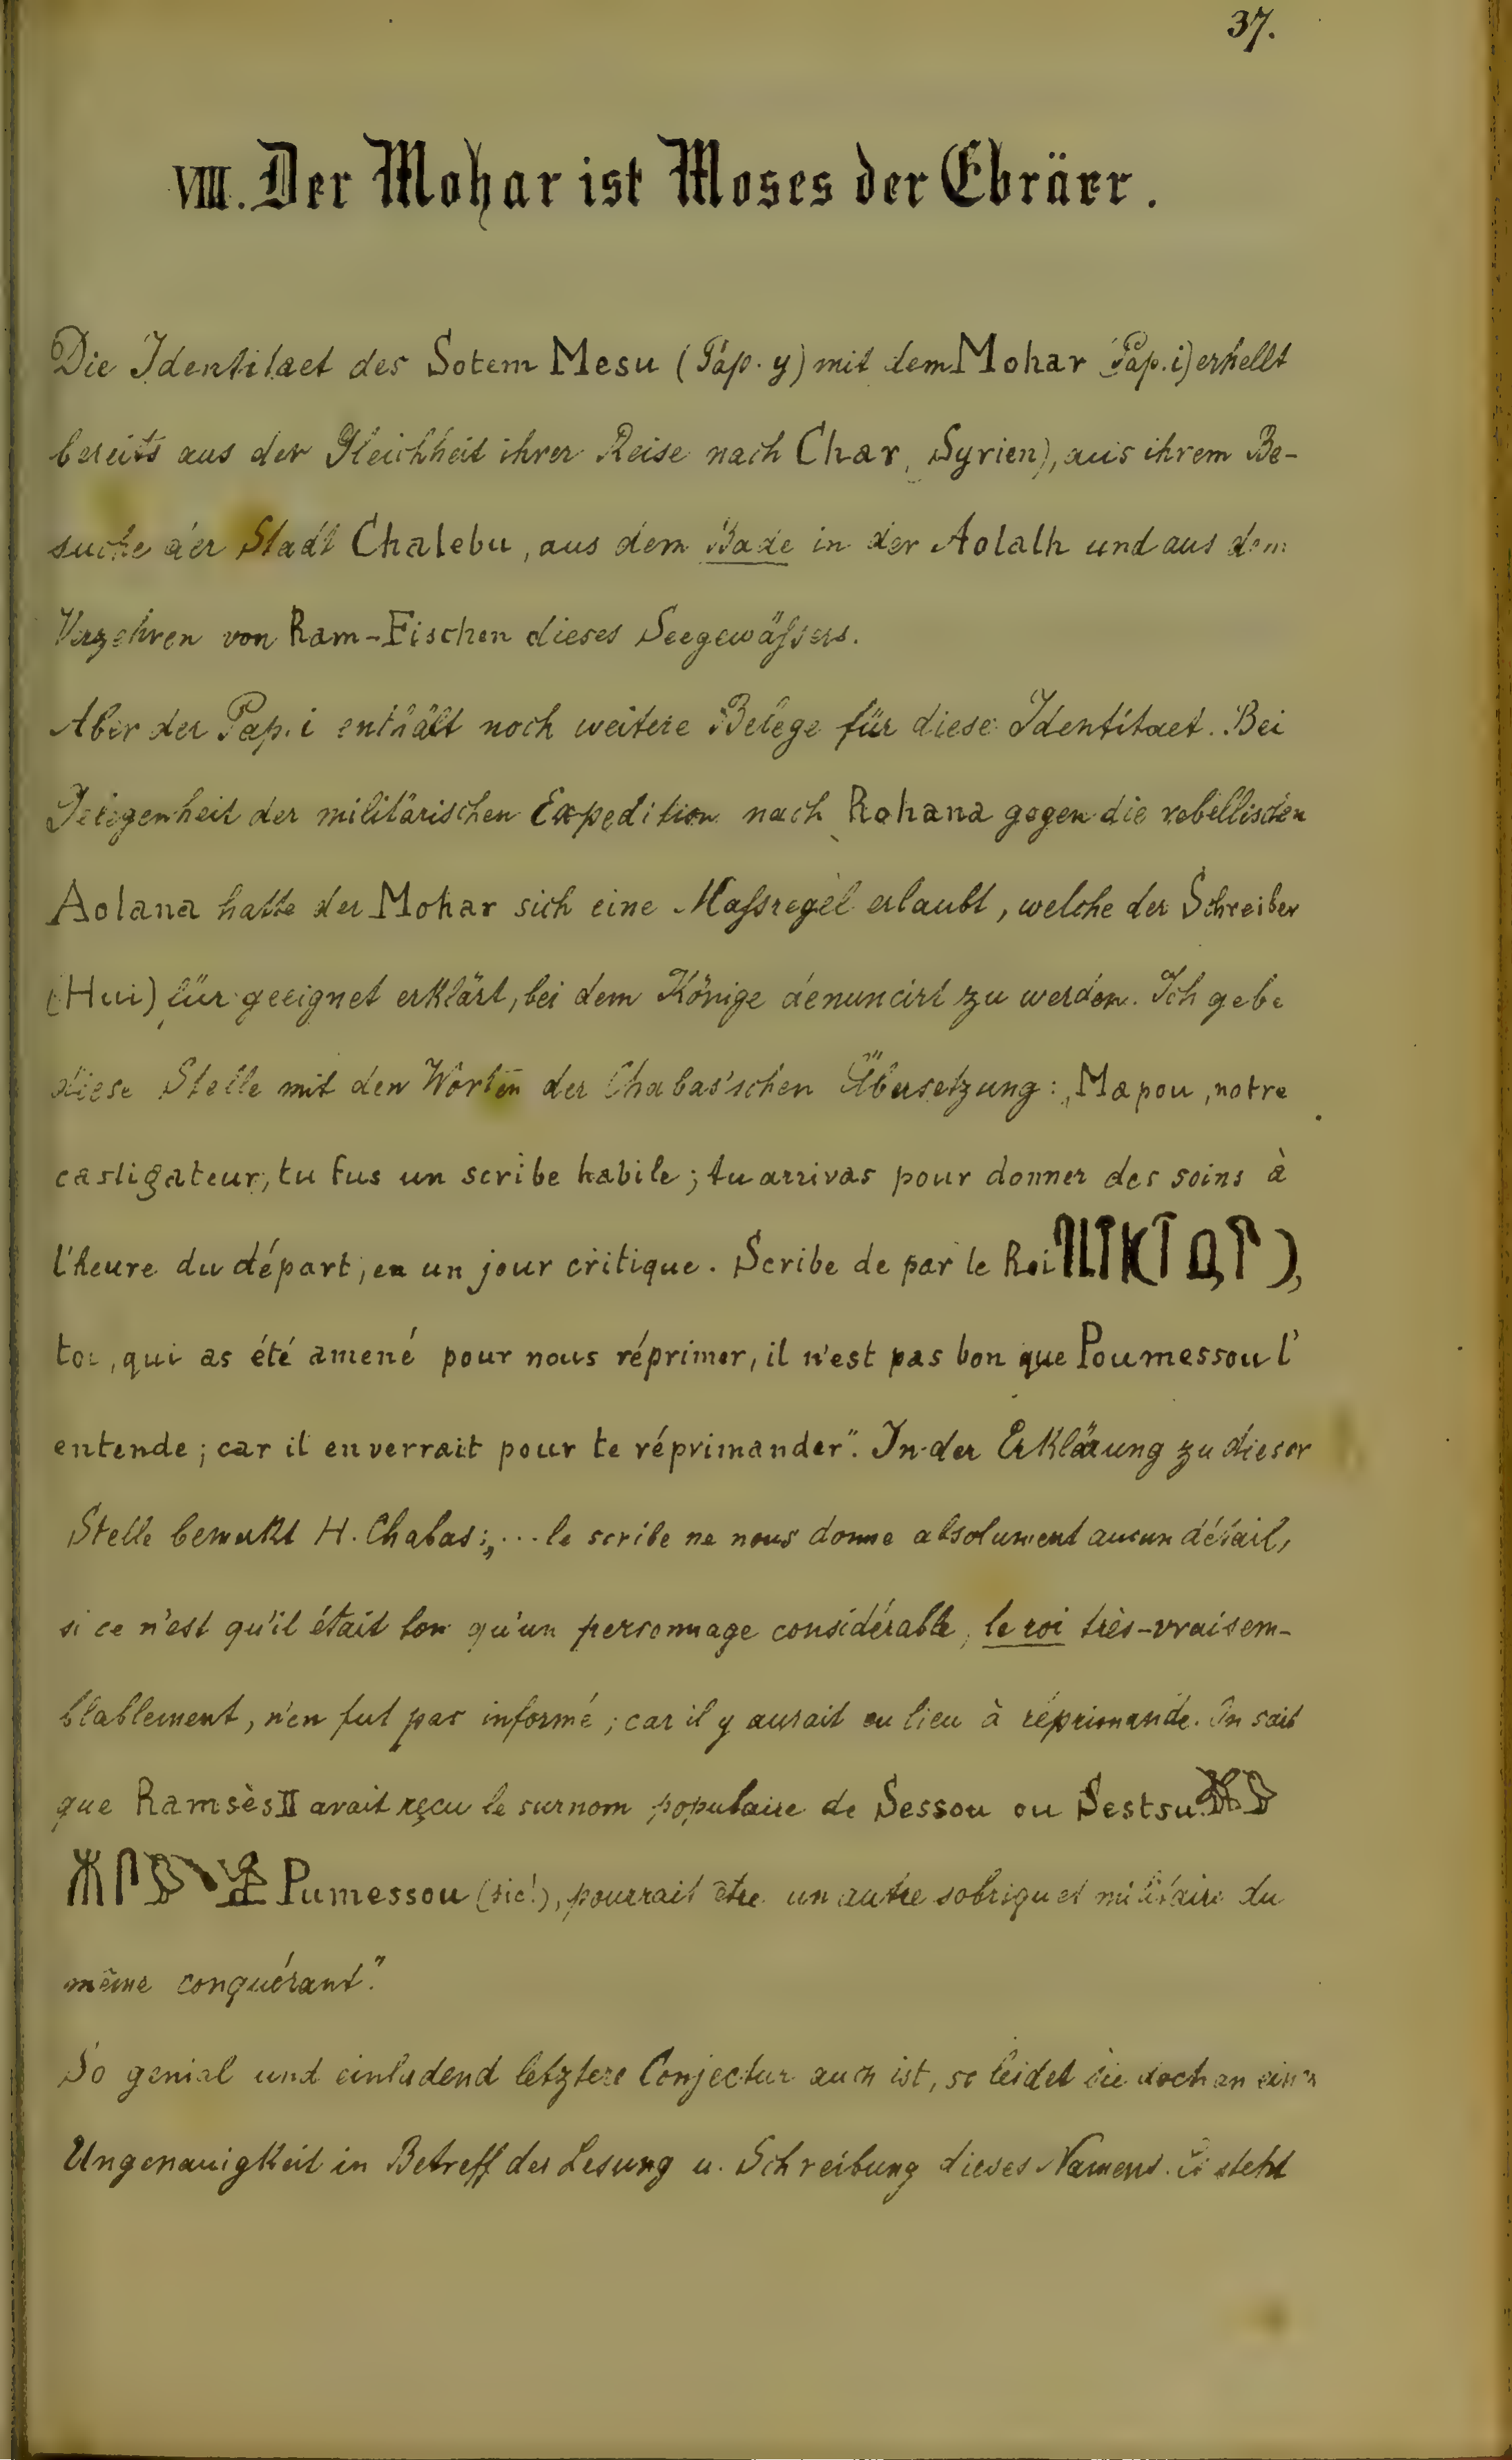 37.
VIII. Der Mohar ist Moses der Ebräer.
Die Identitaet des Sotem Mesu (Pap. y) mit dem Mohar (Pap. i) erhellt
bereits aus der Gleichheit ihrer Reise nach Char (Syrien), aus ihrem Be-
suche der Stadt Chalebu, aus dem Bade in der Aolath und aus dem
Verzehren von Ram-Fischen dieses Seegewäſsers.
Aber der Pap. i enthält noch weitere Belege für diese Identitaet. Bei
Gelegenheit der militärischen Expedition nach Rohana gegen die rebellischen
Aolana hatte der Mohar sich eine Maſsregel erlaubt, welche der Schreiber
(Hui) für geeignet erklärt, bei dem Könige denuncirt zu werden. Ich gebe
diese Stelle mit den Worten der Chabas'schen Übersetzung: „Mapou, notre
castigateur, tu fus un scribe habile; tu arrivas pour donner des soins à
l'heure du départ, en un jour critique. Scribe de par le Roi ),
toi, qui as été amené pour nous réprimer, il n'est pas bon que Poumessou l'
entende; car il enverrait pour te réprimander". In der Erklärung zu dieser
Stelle bemerkt H. Chabas: „... le scribe ne nous donne absolument aucun détail,
si ce n'est qu'il était bon qu'un personnage considérable, le roi très-vraisem-
blablement, n'en fut pas informé; car il y aurait eu lieu à réprimande. On sait
que Ramsès II avait reçu le surnom populaire de Sessou ou Sestsu.
Pumessou (sic!), pourrait être un autre sobriquet militaire du
même conquérant".
So genial und einladend letztere Conjectur auch ist, so leidet sie doch an einer
Ungenauigkeit in Betreff der Lesung u. Schreibung dieses Namens. Es steht